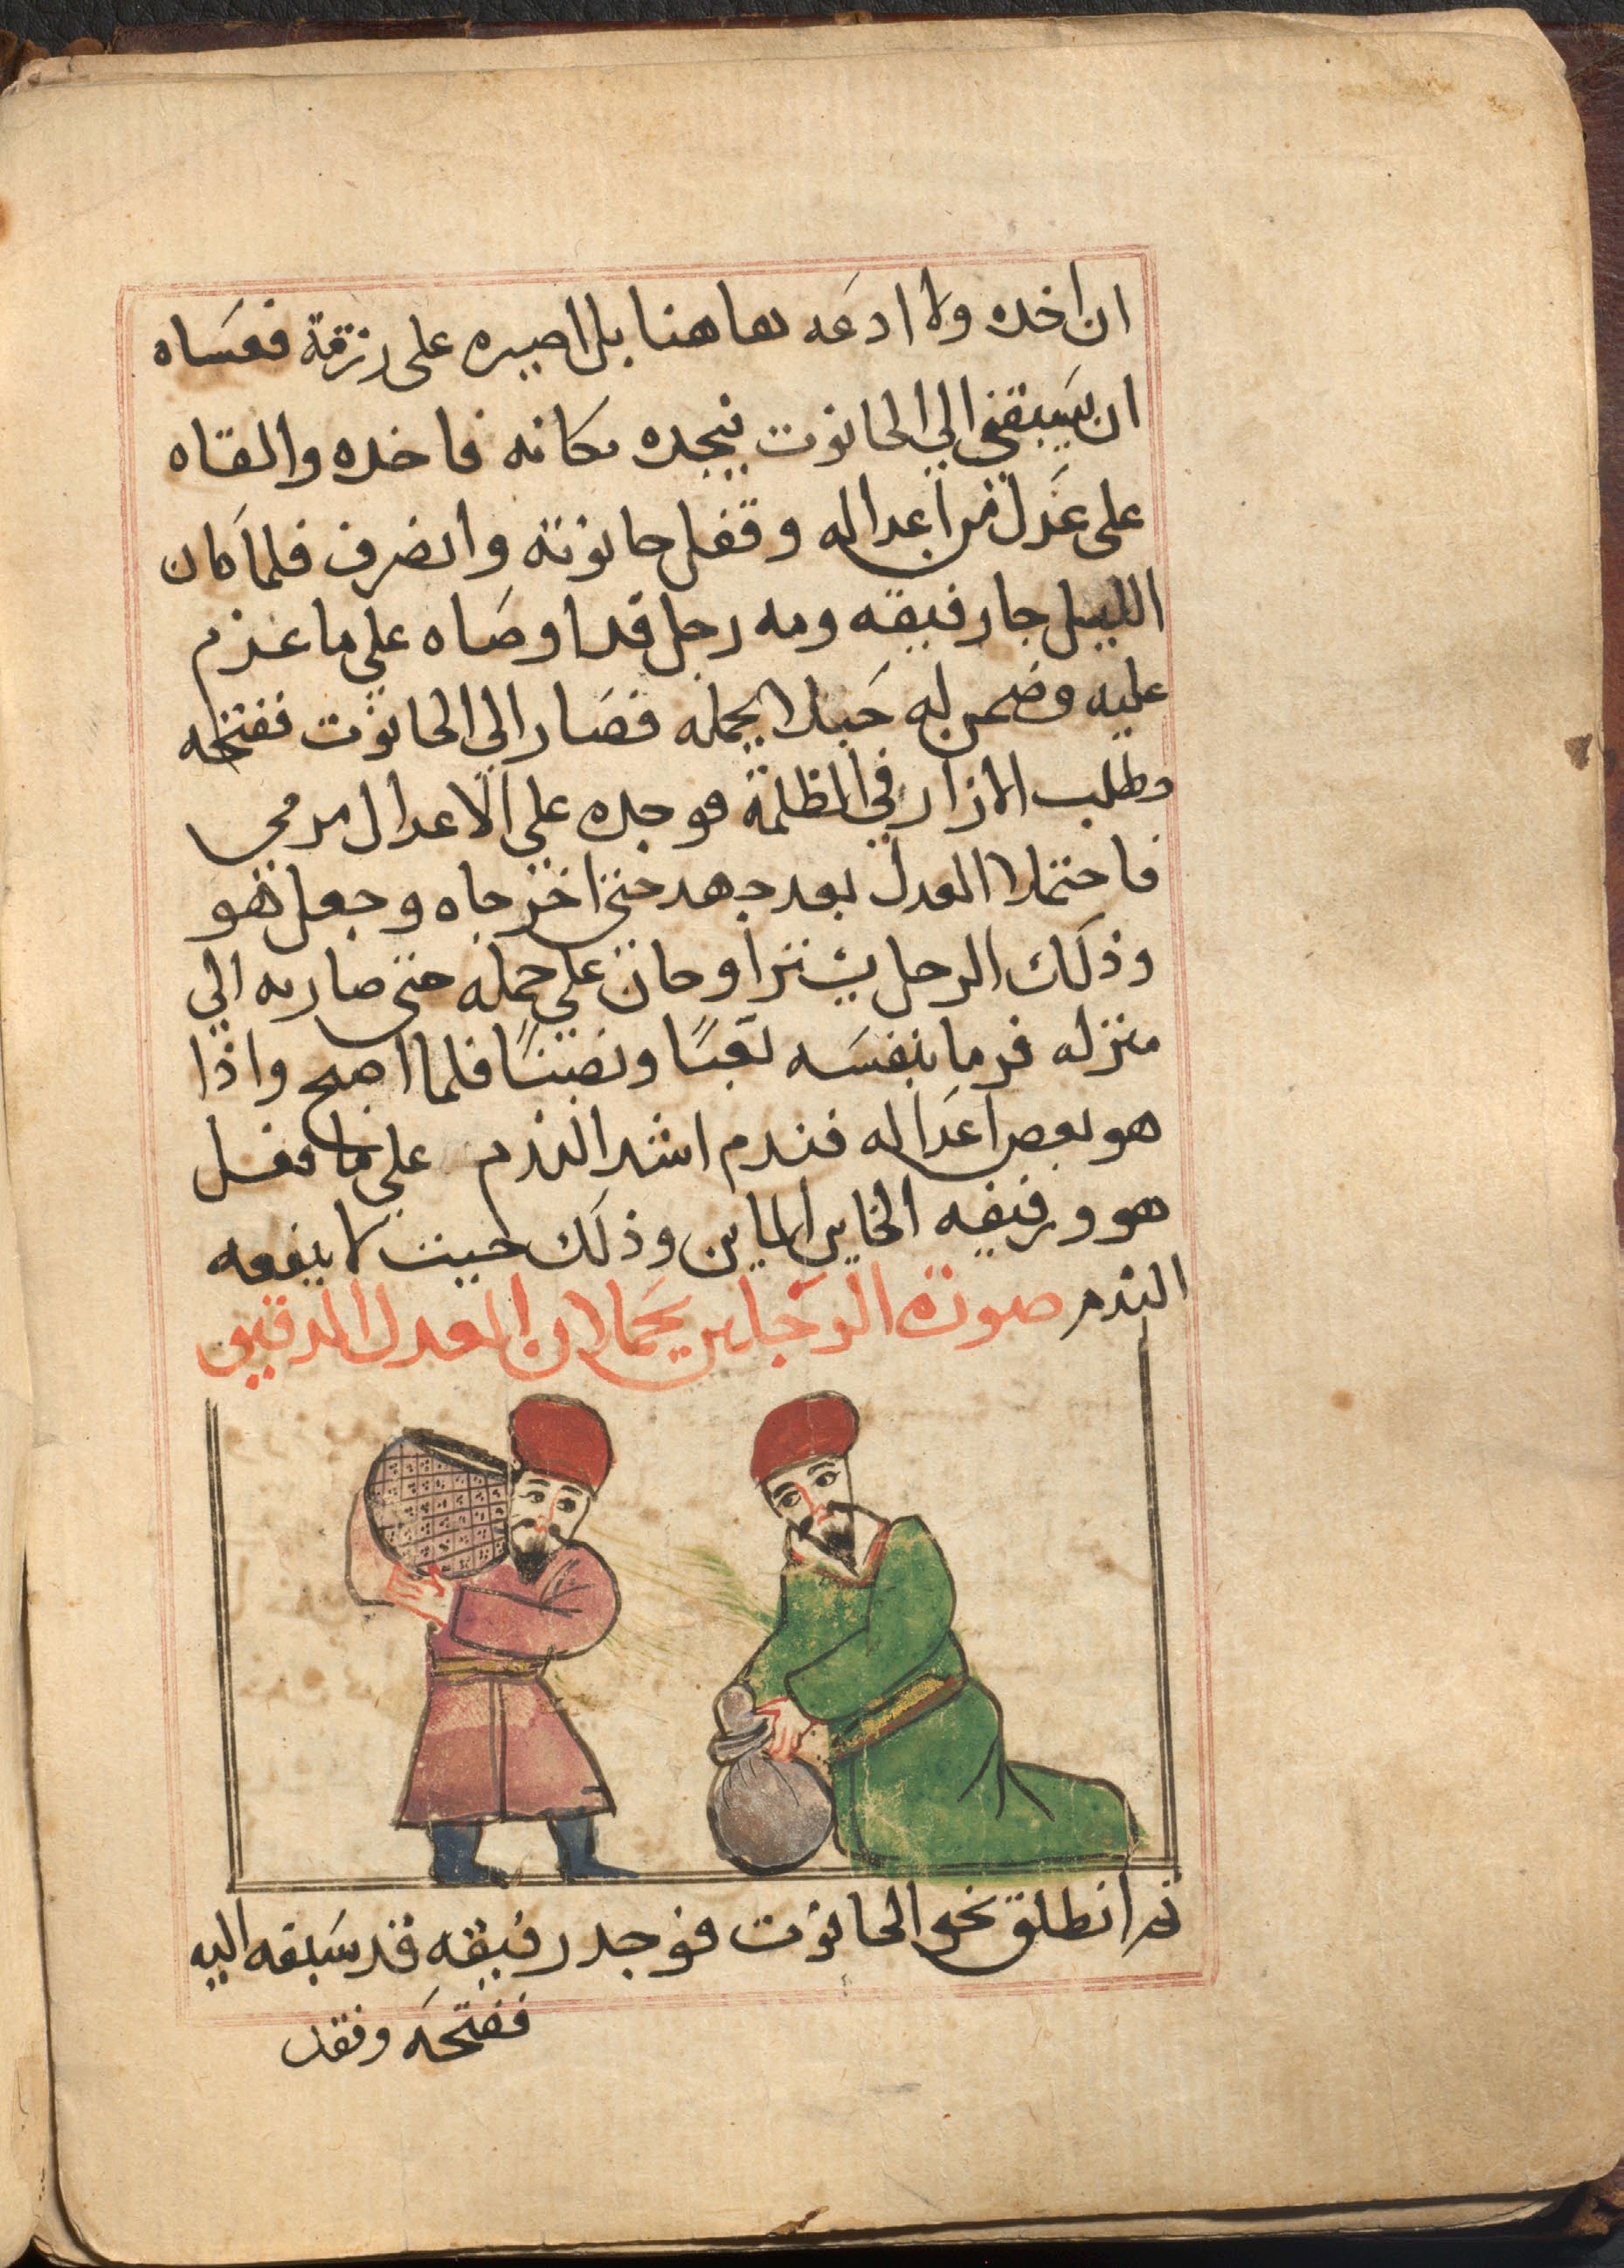 ان اخده ولا ادعه هاهنا بل اصيره على رزمة فعساه
ان يسبقني الي الحانوت فيجده مكانه فاخده والقاه
على عدل من اعداله وقفل حانوته وانصرف فلما كان
الليل جا رفيقه ومعه رجل قد اوصاه علي ما عزم
عليه وضمن له حبلا يحمله فصار الي الحانوت ففتحه
وطلب الازار في الظلمة فوجده علي الاعدال مرمي
فاحتملا العدل بعد جهد حتى اخرجاه وجعل هو
وذلك الرجل يتراوحان علي حمله حتى صار به الي
منزله فرما بنفسه تعبًا ونصبًا فلما اصبح واذا
هو بعض اعداله فندم اشد الندم علي ما فعل
هو ورفيقه الخاين الماين وذلك حيث لا ينفعه
الندم صورة الرجلين يحملان العدل الدقيق
ثم انطلق نحو الحانوت فوجد رفيقه قد سبقه اليه
ففتحه وفقد